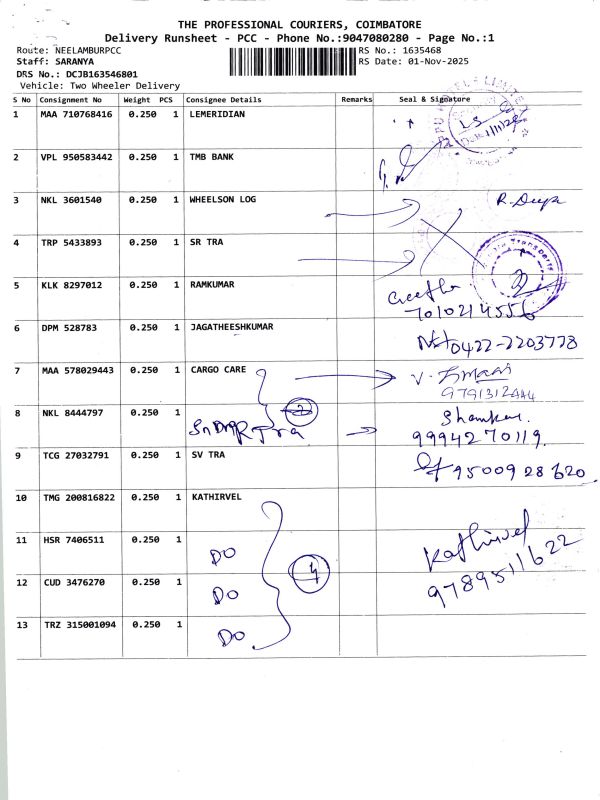 THE PROFESSIONAL COURIERS, COIMBATORE
Delivery Runsheet - PCC - Phone No.:9047080280 - Page No.:1
Route: NEELAMBURPCC RS No.: 1635468
Staff: SARANYA RS Date: 01-Nov-2025
DRS No.: DCJB163546801
Vehicle: Two Wheeler Delivery
S No Consignment No Weight PCS Consignee Details Remarks Seal & Signature
1 MAA 710768416 0.250 1 LEMERIDIAN
2 VPL 950583442 0.250 1 TMB BANK
3 NKL 3601540 0.250 1 WHEELSON LOG
4 TRP 5433893 0.250 1 SR TRA
5 KLK 8297012 0.250 1 RAMKUMAR Geetha
7010214556
6 DPM 528783 0.250 1 JAGATHEESHKUMAR 0422-2203778
7 MAA 578029443 0.250 1 CARGO CARE
8 NKL 8444797 0.250 1 2 Shankar.
9994270119.
9 TCG 27032791 0.250 1 SV TRA 9500928620.
10 TMG 200816822 0.250 1 KATHIRVEL
11 HSR 7406511 0.250 1 DO Kathirvel
12 CUD 3476270 0.250 1 DO 4 9789511622
13 TRZ 315001094 0.250 1 DO